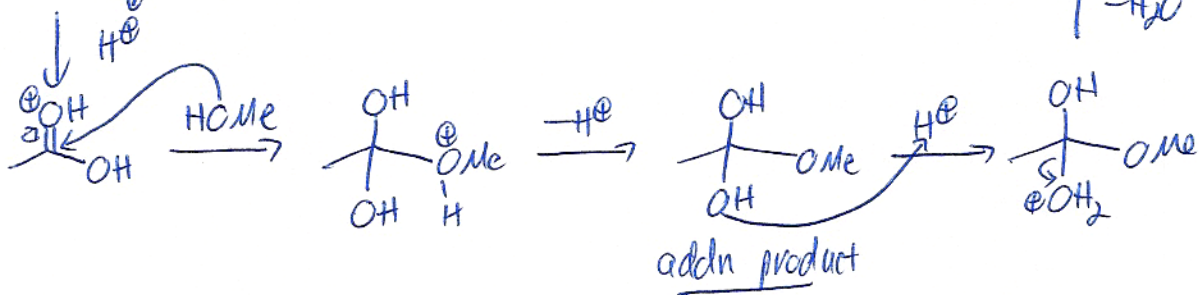 H⊕
−H₂O
⊕OH
HOMe
OH
OH
⊕
OMe
H
OH
−H⊕
OH
OMe
OH
H⊕
OH
OMe
⊕OH₂
addn product